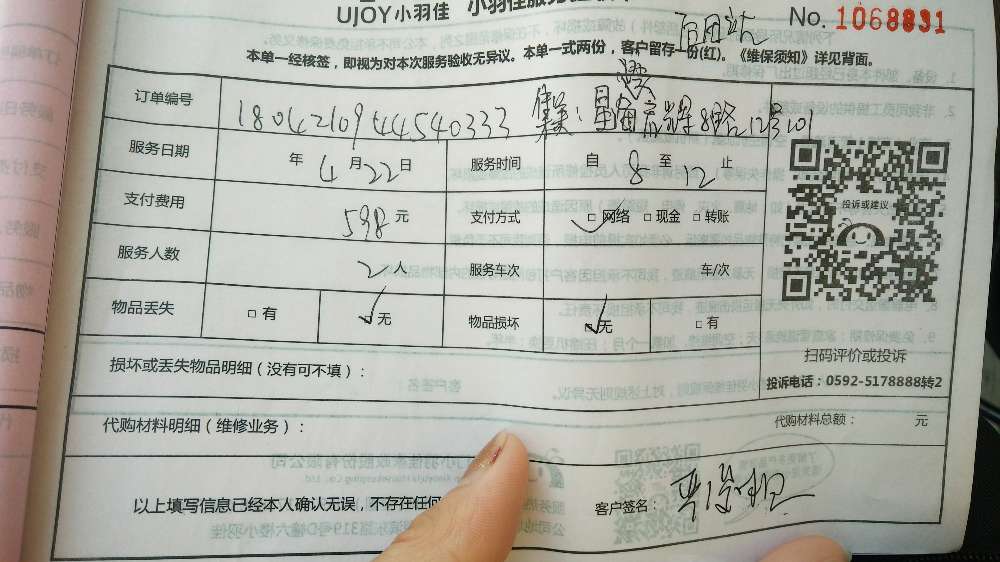 UJOY小羽佳 小羽佳服务
No. 1068831
本单一经核签，即视为对本次服务验收无异议。本单一式两份，客户留存一份(红)。《维保须知》详见背面。
订单编号 1804210944540333 8路12号101
服务日期 年 4 月 22 日 服务时间 自 8 至 12 止
支付费用 598 元 支付方式 ☑ 网络 □ 现金 □ 转账
服务人数 2 人 服务车次 车/次
物品丢失 □ 有 ☑ 无 物品损坏 ☑ 无 □ 有
投诉或建议
扫码评价或投诉
投诉电话：0592-5178888转2
损坏或丢失物品明细（没有可不填）：
代购材料明细（维修业务）： 代购材料总额： 元
以上填写信息已经本人确认无误，不存在任何 客户签名：